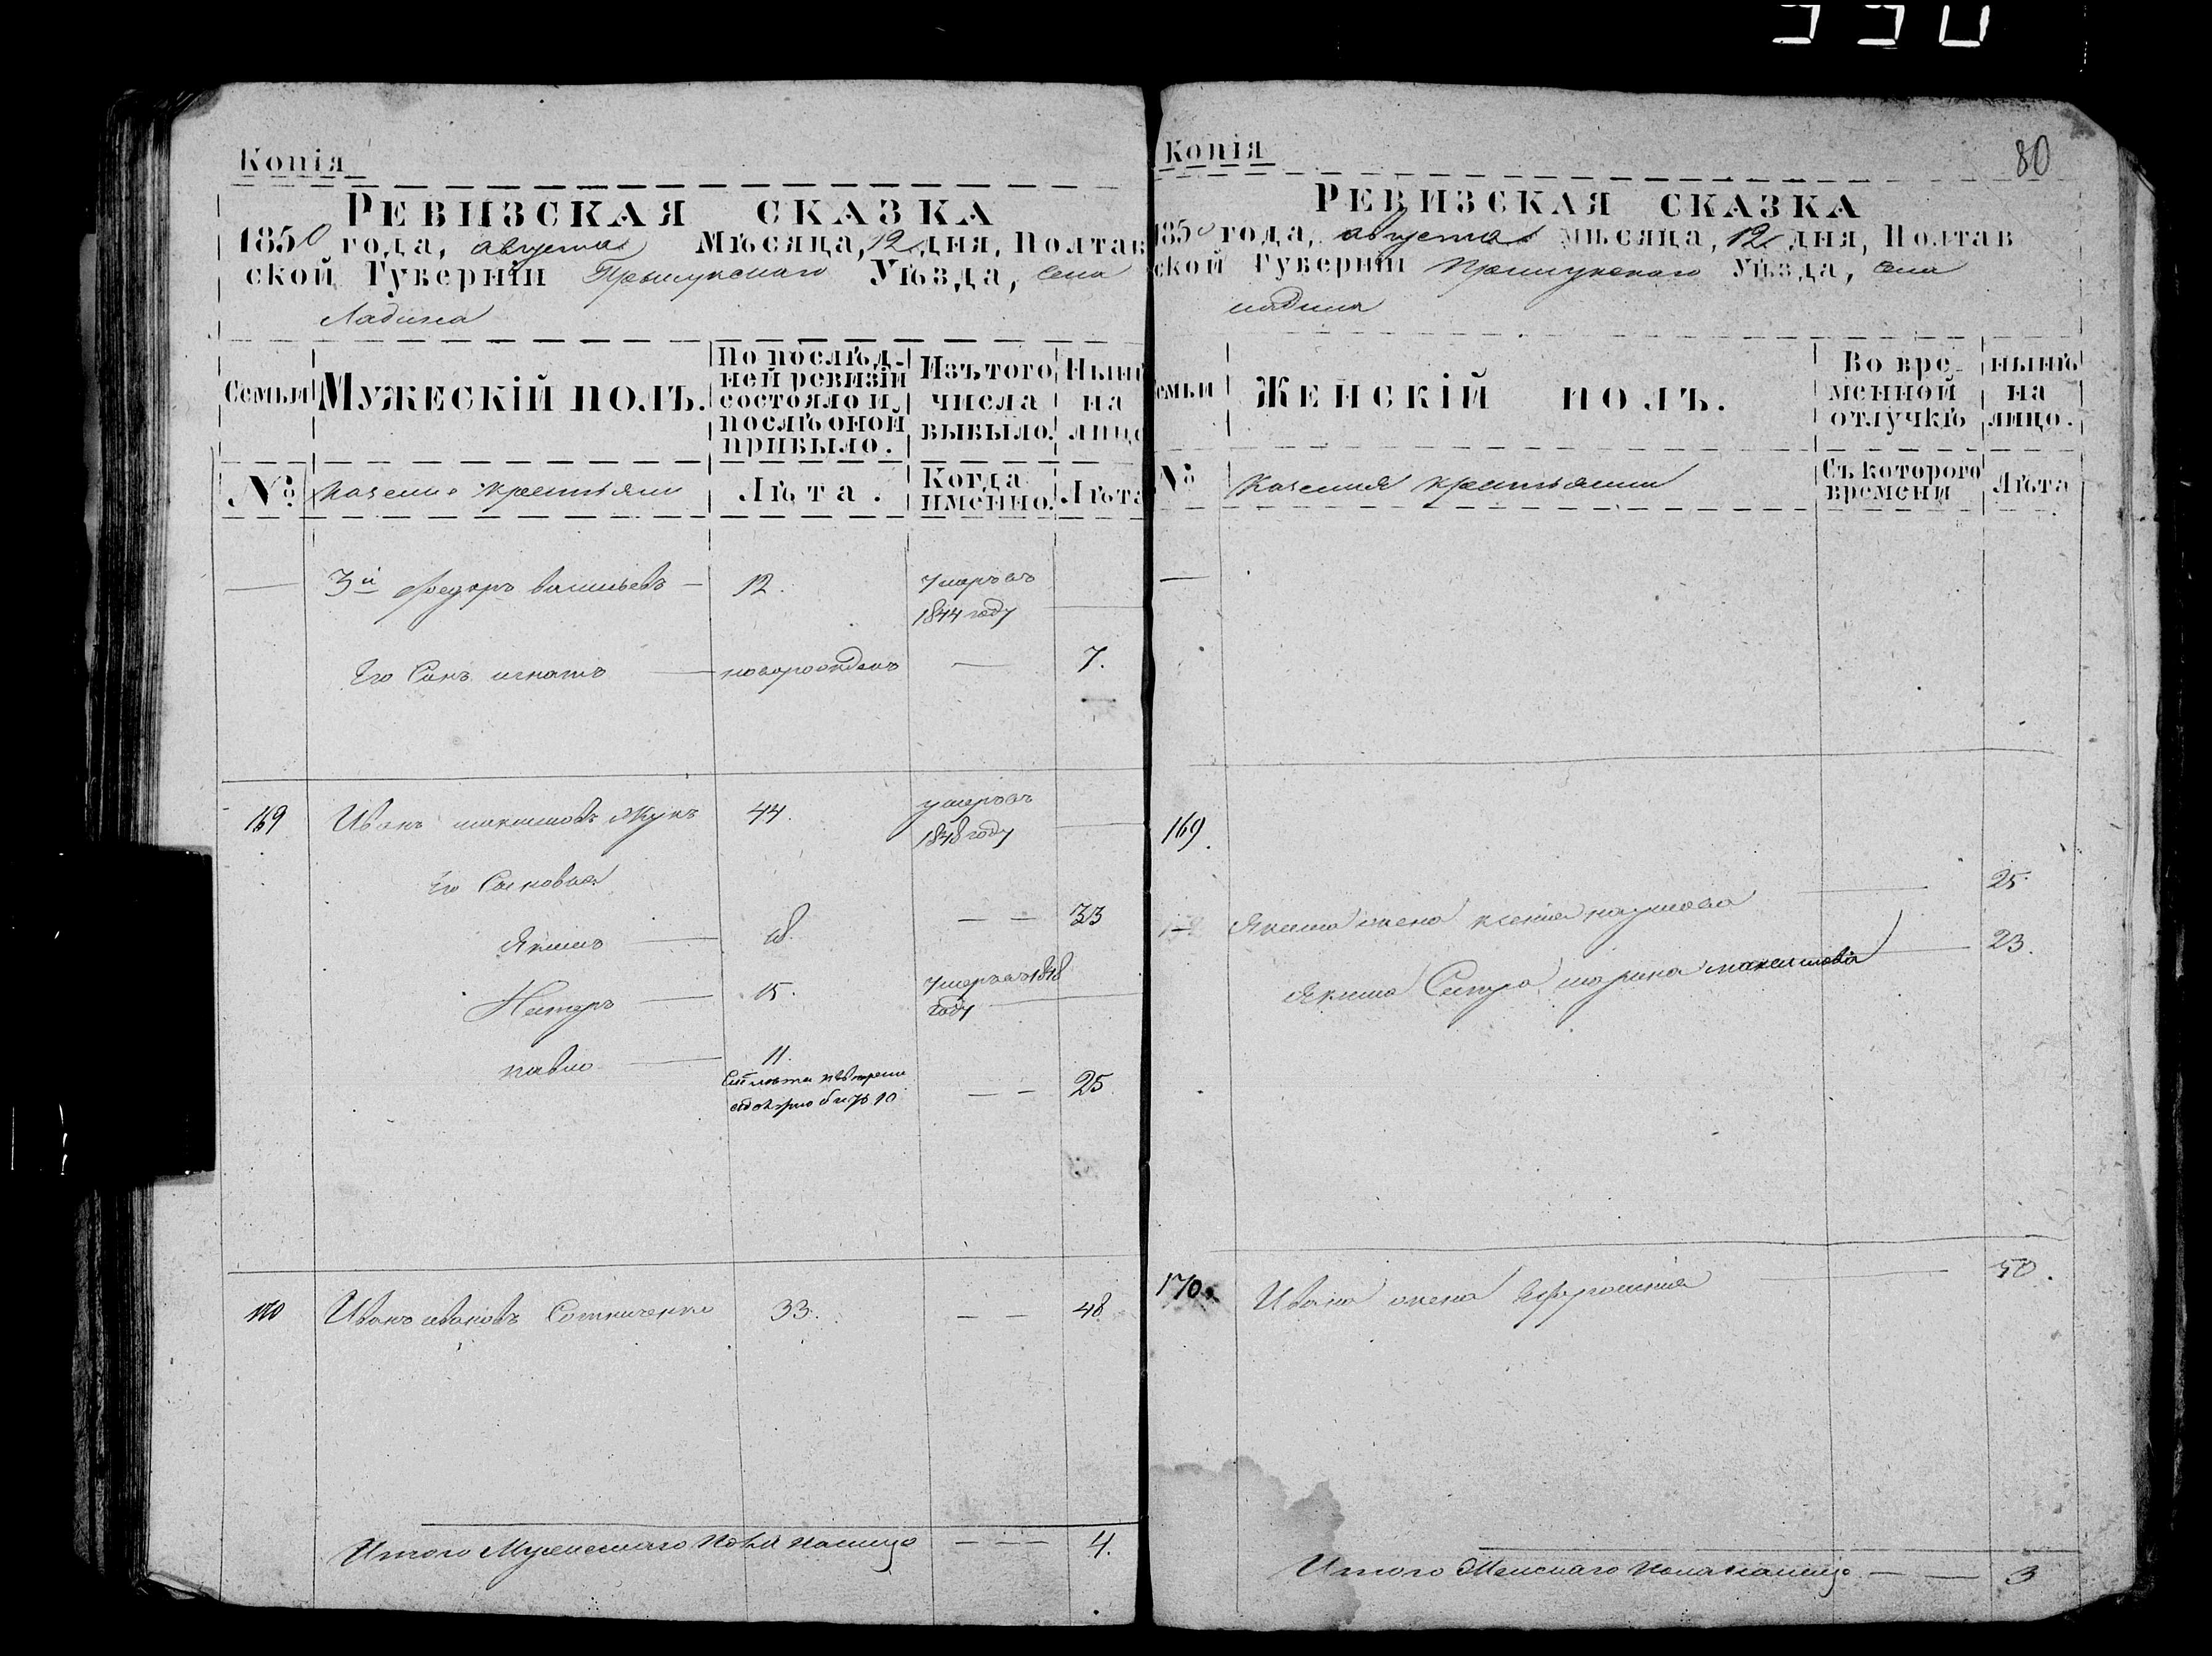 Копія
РЕВИЗСКАЯ СКАЗКА
1850 года, августа Мѣсяца, 12 дня, Полтав
ской Губерніи Прилукскаго Уѣзда, села
Ладина
Семьи
МУЖЕСКІЙ ПОЛЪ.
По послѣд-
ней ревизіи
состояло и
послѣ оной
прибыло.
Изъ того
числа
выбыло.
Нынѣ
на
лицо
№
казенные крестьяне
Лѣта.
Когда
именно.
Лѣта
3й Федоръ васильевъ 12. умеръ въ
1844 году
Его Сынъ игнатъ новорожденъ — 7.
169 Иванъ максимовъ Жукъ 44. умеръ въ
1848 году
Его Сыновья
Якимъ 18. — — 33
Нестеръ 15. умеръ въ 1848
году
павло 11. — — 25
170 Иванъ ивановъ Сотниченко 33. — — 48
Итого Мужескаго пола налицо — — — 4.
80
Копія
РЕВИЗСКАЯ СКАЗКА
1850 года, августа мѣсяца, 12 дня, Полтав
ской Губерніи Прилукскаго Уѣзда, села
ладина
Семьи
ЖЕНСКІЙ ПОЛЪ.
Во вре-
менной
отлучкѣ
нынѣ
на
лицо.
№
казенныя крестьянки
Съ которого
времени
Лѣта
169.
Якима жена ксенія наумова 25.
Якима Сестра марина максимова 23.
170. Ивана жена Ефросинія 50.
Итого Женскаго пола налицо — — 3